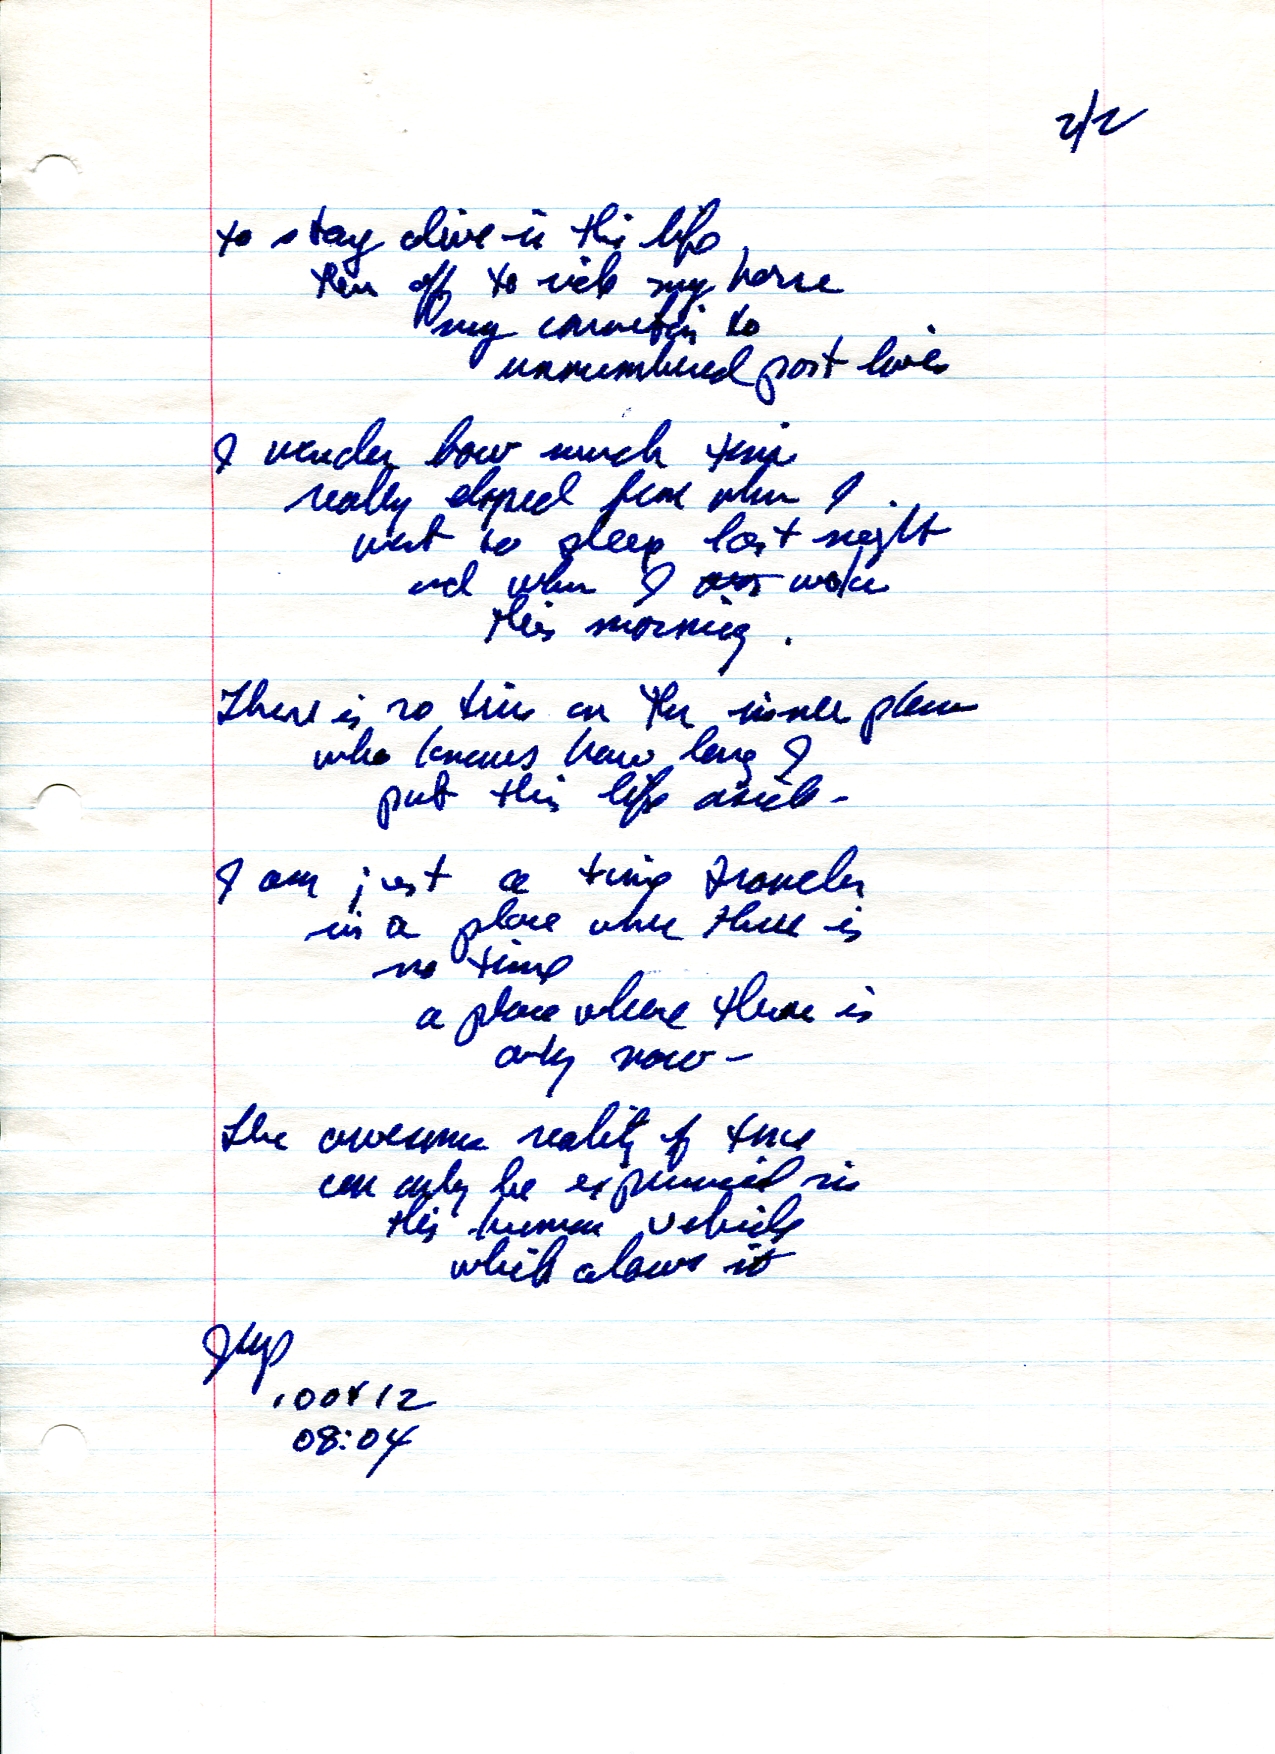 2/2
to stay alive in this life
then off to ride my horse
my connection to
unnumbered past lives
I wonder how much time
really elapsed from when I
went to sleep last night
and when I woke
this morning.
There is no time on the inner plane
who knows how long I
put this life aside -
I am just a time traveler
in a place where there is
no time
a place where there is
only now -
The awesome reality of time
can only be experienced in
this human vehicle
which alows it
08:04